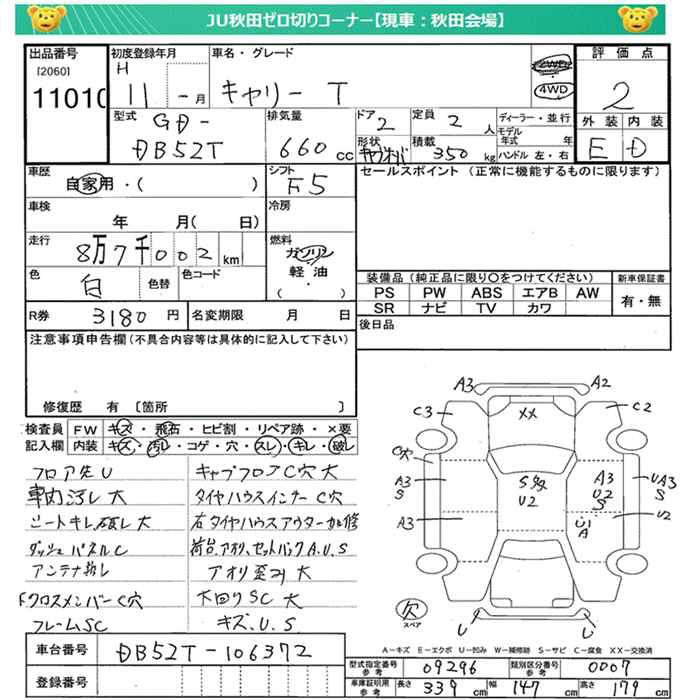 JU秋田ゼロ切りコーナー【現車：秋田会場】
出品番号
[2060]
11010
初度登録年月
H
11 - 月
車名・グレード
キャリー T
4WD
評価点
2
外装 内装
E D
型式
GD-
DB52T
排気量
660 cc
ドア
2
形状
定員
2 人
積載
350 kg
ディーラー・並行
モデル年式 年
ハンドル 左・右
車歴
自家用・( )
シフト
F5
セールスポイント (正常に機能するものに限ります)
車検
年 月( 日)
冷房
走行
8万7千002 km
燃料
ガソリン
軽油
( ・ )
色
白
色替
色コード
装備品 (純正品に限り○をつけてください)
新車保証書
PS PW ABS エアB AW
SR ナビ TV カワ
有・無
R券 3180 円
名変期限 月 日
後日品
注意事項申告欄 (不具合内容等は具体的に記入して下さい)
修復歴 有 〔箇所 〕
検査員
記入欄
FW キズ・飛石・ヒビ割・リペア跡・×要
内装 キズ・汚レ・コゲ・穴・スレ・キレ・破レ
フロア左U
車内汚レ大
シートキレ破レ大
ダッシュパネルC
Fクロスメンバー C穴
フレームSC
キャブフロアC穴大
タイヤハウスインナーC穴
右タイヤハウスアウター加修
荷台、アオリ、セットバックA.U.S
アオリ歪ミ大
下回りSC大
キズ.U.S
A3 A2
C3 XX C2
C穴
A3
S
A3
U2
A3
U2
S
UA3
S
U2
U1
A
欠
スペア
U U
A－キズ E－エクボ U－凹み W－補修跡 S－サビ C－腐食 XX－交換済
車台番号 DB52T-106372
登録番号
型式指定番号
参考
09296
類別区分番号
参考
0007
車庫証明用
参考
長さ 339 cm 幅 147 cm 高さ 179 cm